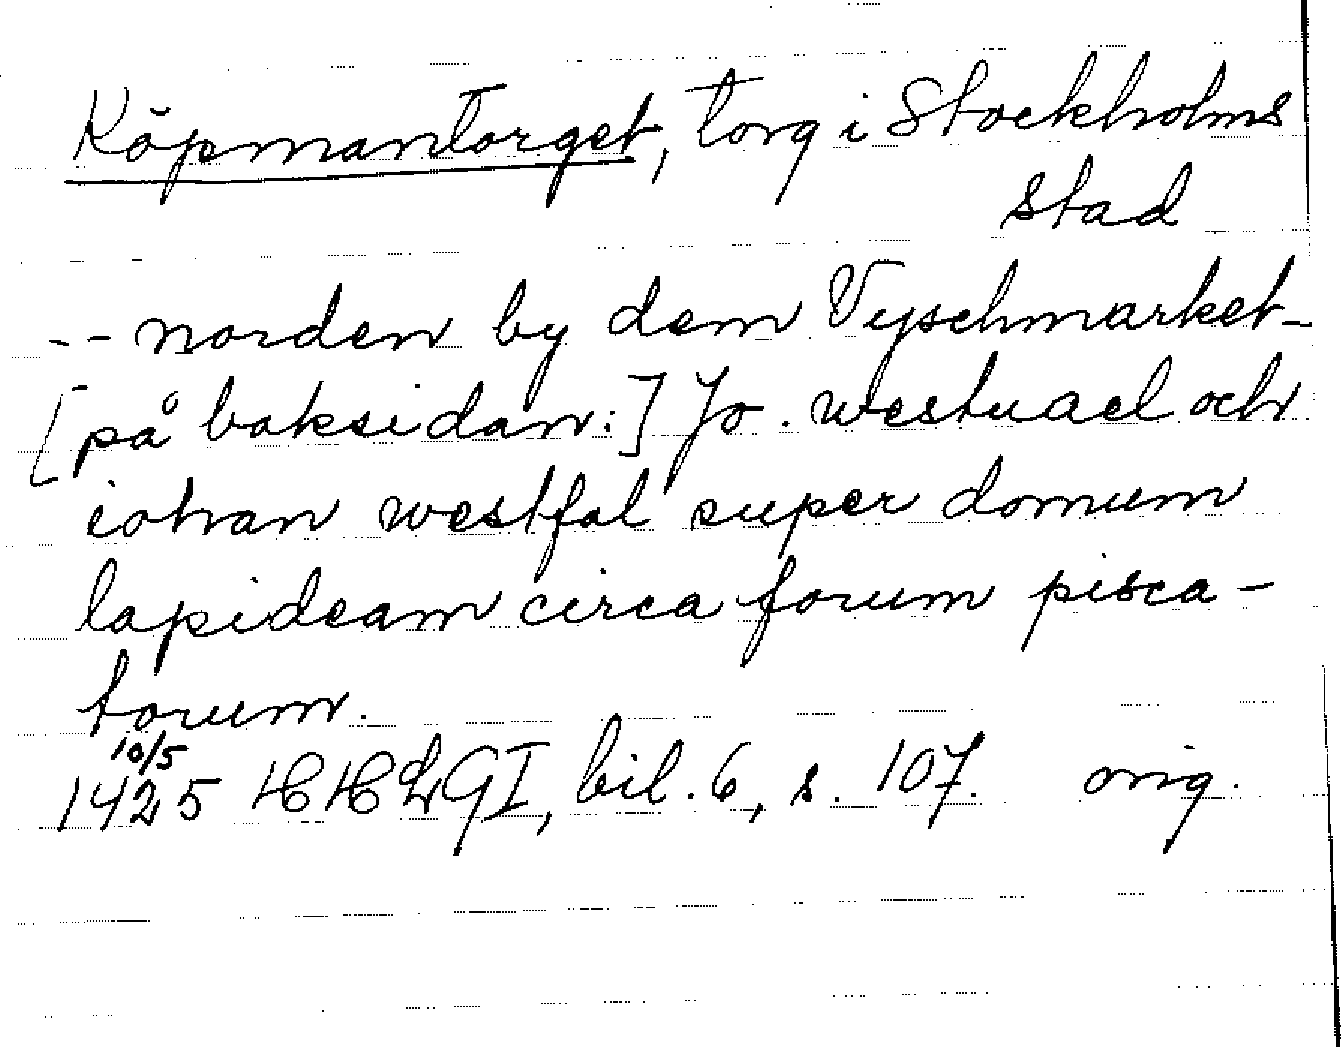 Köpmantorget, torg i Stockholms
stad
-- norden by dem Vyschmarket-
[på baksidan:] Jo. westuael och
iohan westfal super domum
lapideam circa forum pisca-
torum.
10/5
1425 HHLGI, bil. 6, s. 107. orig.